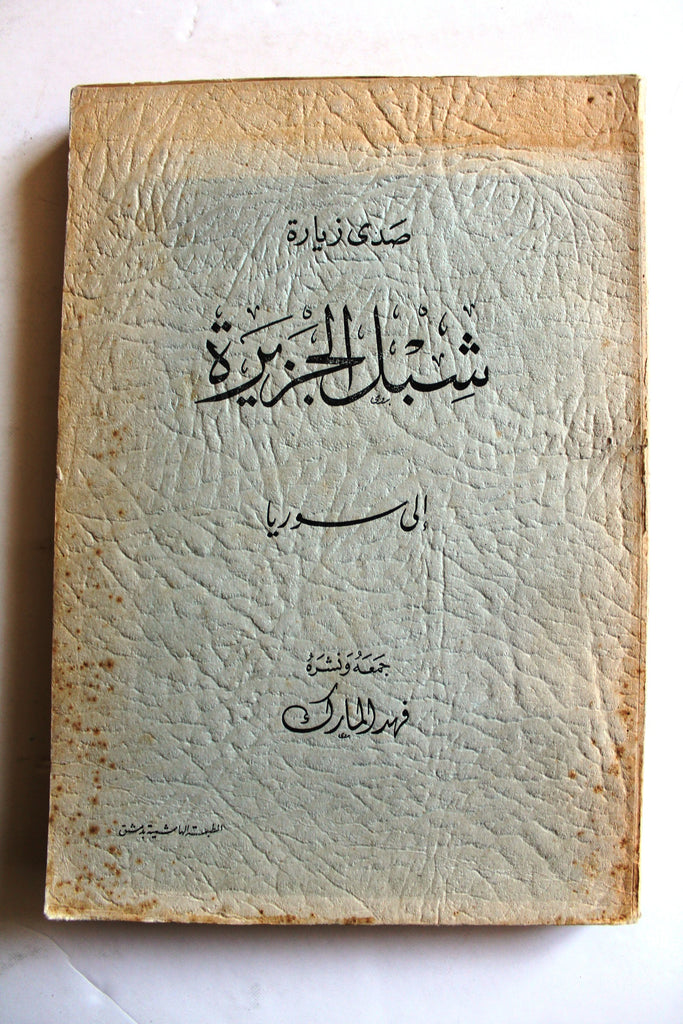 صَدى زيارة
شِبْل الجَزيرَة
إلى سوريا
جمَعَهُ وَنشرَهُ
فهد المارك
المطبعة الهاشمية بدمشق